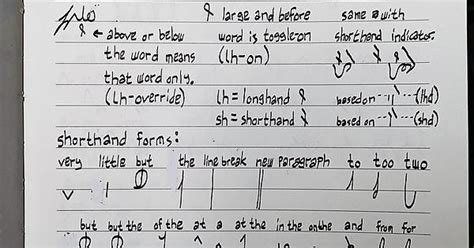 large and before same with
← above or below word is toggle on shorthand indicator.
the word means (lh-on)
that word only.
(lh-override) lh = longhand based on (lhd)
sh = shorthand based on (shd)
shorthand forms:
very little but the line break new paragraph to too two
but but the of the at a at the in the on the and from for